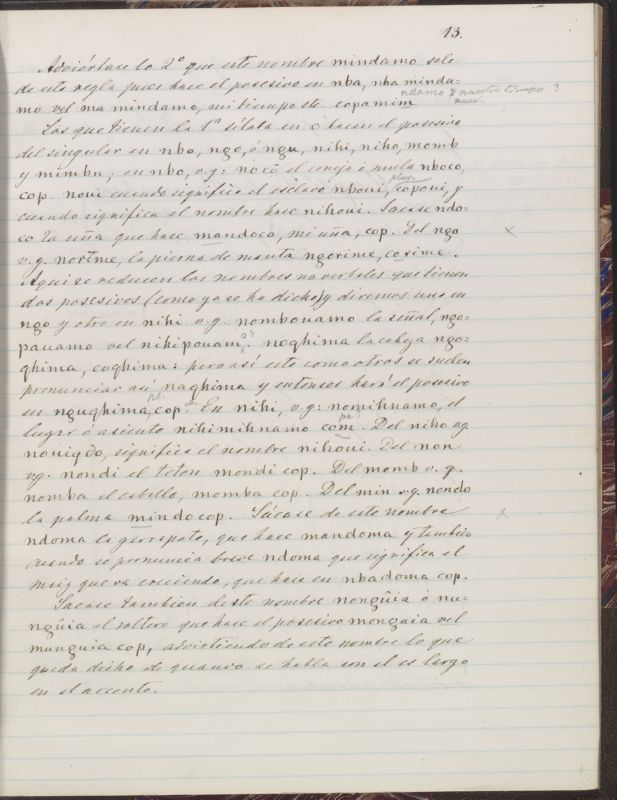 13.
Adviértase lo 2º que este nombre mindamo sale
de esta regla pues hace el posesivo en nba, nba minda=
mo vel ma mindamo, mi tiempo etc. copamim
ndamo nuestro tiempo?
Los que tienen la 1ª sílaba en o hacen el posesivo
del singular en nbo, ngo, ó ngu, nihi, niho, momb
y mimbu; en nbo, v.g: noco el conejo ó nboco,
plur.
cop. noui cuando significa el esclavo nboui, copoui, y
cuando significa el nombre hace nihoui. Sacase ndo=
co la uña que hace mandoco, mi uña, cop. Del ngo
v.g. norime, la pierna de manta ngorime, corime.
Aqui se reducen los nombres no verbales que tienen
dos posesivos (como ya se ha dicho) y diremos uno en
ngo y otro en nihi v.g. nombouamo la señal, ngo=
pauamo vel nihipouamo: noghima la cabeza ngo=
ghima, coghima: pero así este como otros se suelen
pronunciar así naghima y entonces hará el posesivo
en ngughima, cop. En nihi, v.g: nomihnamo, el
lugar ó asiento nihimihnamo com. Del niho vg.
nouiqdo, significa el nombre nihoui. Del non
vg. nondi el mondi cop. Del momb v. g.
nomba el cabello, momba cop. Del min v.g. nondo
la palma mindo cop. Sácase de este nombre
ndoma la garrapata, que hace mandoma y tambien
cuando se pronuncia breve ndoma que significa el
maiz que va creciendo, que hace en nbadoma cop.
Sacase tambien deste nombre nongûia ó nu=
ngûia el soltero que hace el posesivo monguia vel
munguia cop, advirtiendo de este nombre lo que
queda dicho de quando se habla con el es largo
en el accento.